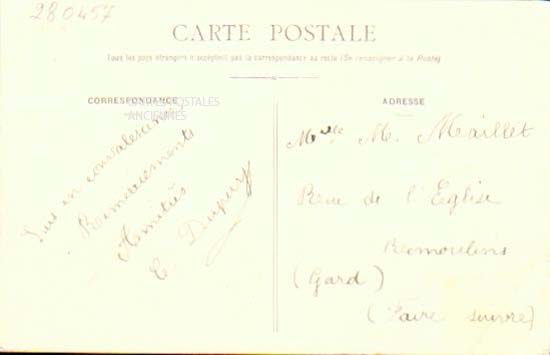 280457
CARTE POSTALE
Tous les pays étrangers n'acceptent pas la correspondance au recto (Se renseigner à la Poste)
CORRESPONDANCE
CARTES POSTALES
ANCIENNES
Suis en convalescence
Remerciements
Amitiés
E. Dupuy
ADRESSE
Melle M. Maillet
Rue de l'Eglise
Remoulins
(Gard)
(Faire suivre)